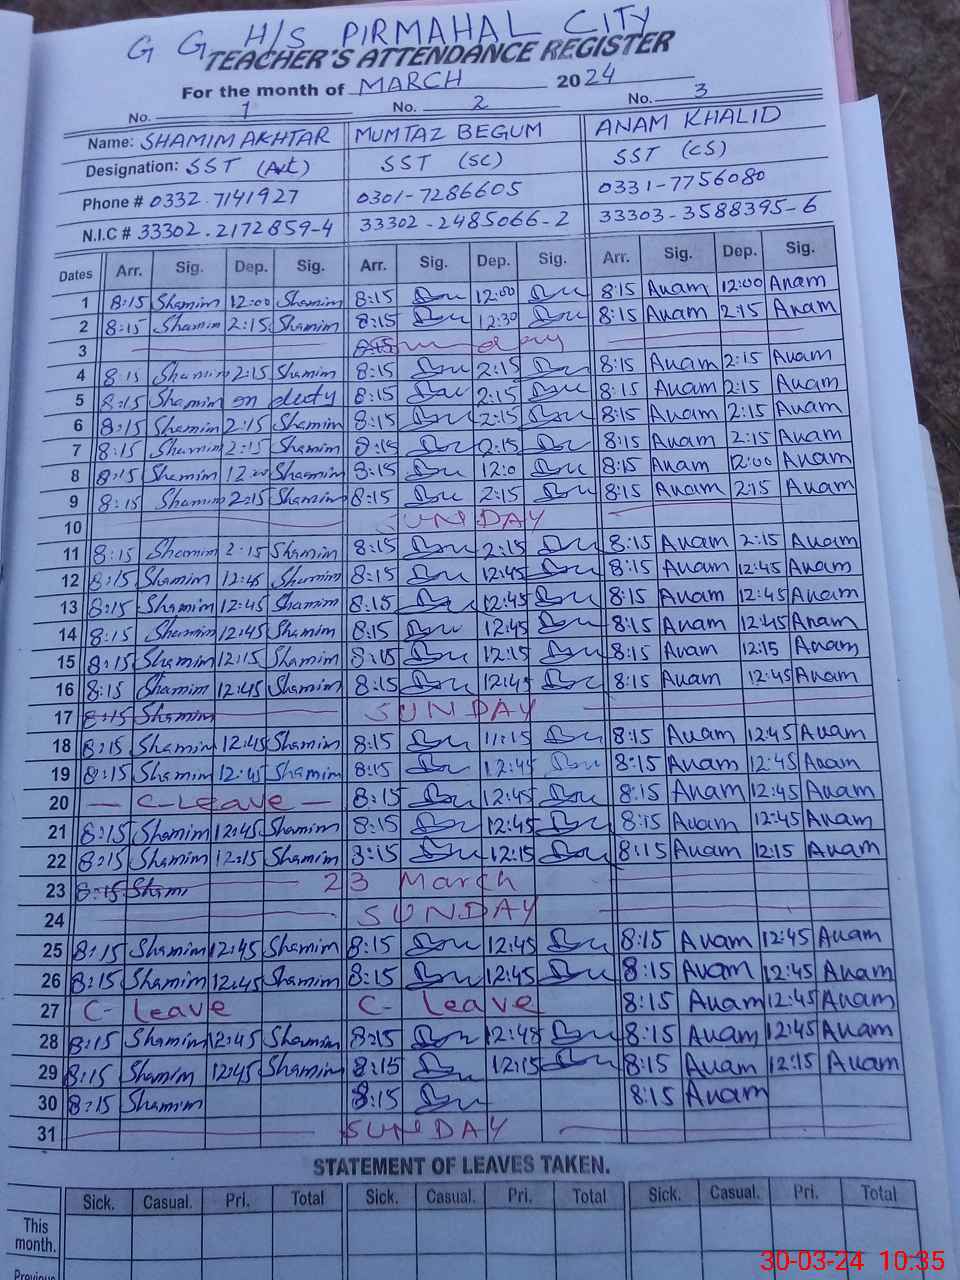 G G H/S PIRMAHAL CITY
TEACHER'S ATTENDANCE REGISTER
For the month of MARCH 2024
No. 1 No. 2 No. 3
Name: SHAMIM AKHTAR MUMTAZ BEGUM ANAM KHALID
Designation: SST (Art) SST (SC) SST (CS)
Phone # 0332-7141927 0301-7286605 0331-7756080
N.I.C # 33302-2172859-4 33302-2485066-2 33303-3588395-6
Dates Arr. Sig. Dep. Sig. Arr. Sig. Dep. Sig. Arr. Sig. Dep. Sig.
1 8:15 Shamim 12:00 Shamim 8:15 12:00 8:15 Anam 12:00 Anam
2 8:15 Shamim 2:15 Shamim 8:15 12:30 8:15 Anam 2:15 Anam
3
4 8:15 Shamim 2:15 Shamim 8:15 2:15 8:15 Anam 2:15 Anam
5 8:15 Shamim on duty 8:15 2:15 8:15 Anam 2:15 Anam
6 8:15 Shamim 2:15 Shamim 8:15 2:15 8:15 Anam 2:15 Anam
7 8:15 Shamim 2:15 Shamim 8:15 2:15 8:15 Anam 2:15 Anam
8 8:15 Shamim 12:00 Shamim 8:15 12:0 8:15 Anam 12:00 Anam
9 8:15 Shamim 2:15 Shamim 8:15 2:15 8:15 Anam 2:15 Anam
10 SUNDAY
11 8:15 Shamim 2:15 Shamim 8:15 2:15 8:15 Anam 2:15 Anam
12 8:15 Shamim 12:45 Shamim 8:15 12:45 8:15 Anam 12:45 Anam
13 8:15 Shamim 12:45 Shamim 8:15 12:45 8:15 Anam 12:45 Anam
14 8:15 Shamim 12:45 Shamim 8:15 12:45 8:15 Anam 12:45 Anam
15 8:15 Shamim 12:15 Shamim 8:15 12:15 8:15 Anam 12:15 Anam
16 8:15 Shamim 12:45 Shamim 8:15 12:45 8:15 Anam 12:45 Anam
17 8:15 Shamim SUNDAY
18 8:15 Shamim 12:45 Shamim 8:15 11:15 8:15 Anam 12:45 Anam
19 8:15 Shamim 12:45 Shamim 8:15 12:45 8:15 Anam 12:45 Anam
20 — C-Leave — 8:15 12:45 8:15 Anam 12:45 Anam
21 8:15 Shamim 12:45 Shamim 8:15 12:45 8:15 Anam 12:45 Anam
22 8:15 Shamim 12:15 Shamim 8:15 12:15 8:15 Anam 12:15 Anam
23 8:15 Shami 23 March
24 SUNDAY
25 8:15 Shamim 12:45 Shamim 8:15 12:45 8:15 Anam 12:45 Anam
26 8:15 Shamim 12:45 Shamim 8:15 12:45 8:15 Anam 12:45 Anam
27 C- Leave C- Leave 8:15 Anam 12:45 Anam
28 8:15 Shamim 12:45 Shamim 8:15 12:45 8:15 Anam 12:45 Anam
29 8:15 Shamim 12:45 Shamim 8:15 12:15 8:15 Anam 12:15 Anam
30 8:15 Shamim 8:15 8:15 Anam
31 SUNDAY
STATEMENT OF LEAVES TAKEN.
Sick. Casual. Pri. Total Sick. Casual. Pri. Total Sick. Casual. Pri. Total
This
month.
Previous
30-03-24 10:35